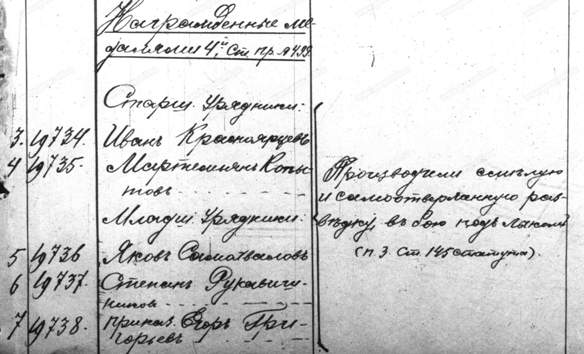 Награжденные ме-
далями 4й Ст. пр. № 499
Старш. Урядники:
3. 19734. Иванъ Красноярцевъ
4 19735. Мартемьянъ Копы-
товъ
Младш. Урядники:
5 19736 Яковъ Самохваловъ
6 19737. Степанъ Рукавиш-
никовъ
7 19738. приказ. Егоръ Гри-
горьевъ
Производили смѣлую
и самоотверженную раз-
вѣдку, въ бою подъ
(п. 3. Ст. 145 статута).